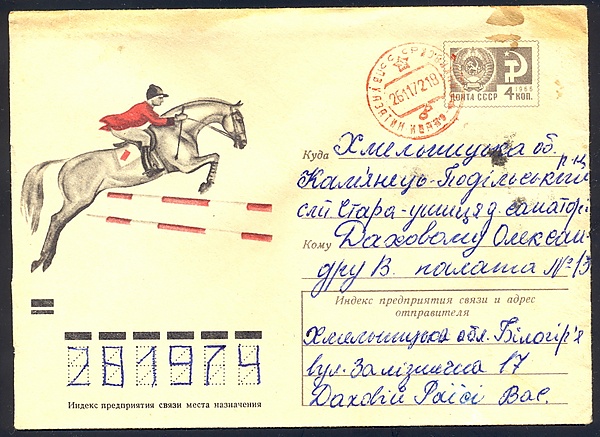 ПОЧТА СССР
4 КОП.
1966
261172 18
Куда Хмельницька об.
р-н
Кам'янець-Подільський
Стара-
Кому Даховому Олексан-
дру В. палата №13
Индекс предприятия связи и адрес
отправителя
Хмельницька обл. Білогір'я
вул. Залізнична 17
Даховій Раїсі Вас.
281974
Индекс предприятия связи места назначения